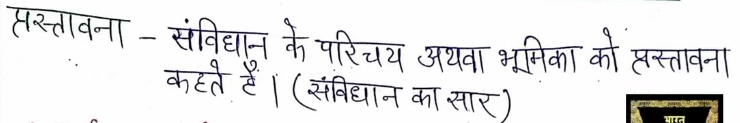 प्रस्तावना – संविधान के परिचय अथवा भूमिका को प्रस्तावना
कहते हैं। (संविधान का सार)
भारत